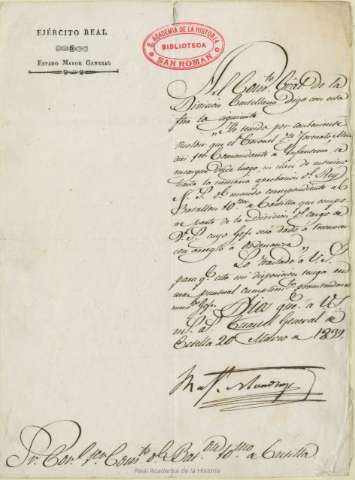 EJÉRCITO REAL
ESTADO MAYOR GENERAL
R. ACADEMIA DE LA HISTORIA
BIBLIOTECA
SAN ROMAN
Al Comte Gral de la
División Castellana digo con esta
fha lo siguiente
resolver que el Coronel
1er Comandante de Infantería se
encargue desde luego, en clase de interino
hasta la soberana aprobación del Rey
N. S. del mando correspondiente al
Batallón de Castilla que compo-
ne parte de la división del cargo de
V. S. cuyo Gefe será dado a reconocer
con arreglo a ordenanza
Lo traslado a V. S.
para que esta mi disposición tenga su
mas puntual cumplimto
Dios gue a V. S.
m. a. Cuartel General de
Estella 20 Marzo de 1839
Sr. Corl 1er Comte del Bon de Castilla.
Real Academia de la Historia